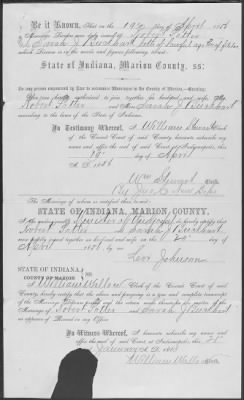 Be it Known, That on the 19th Day of April 1858
a Marriage License was duly issued to Robert Potter
to Sarah J Burkhart both of lawful age
which License is in the words and figures following, to-wit:
State of Indiana, Marion County, ss:
To any person empowered by Law to solemnize Marriages in the County of Marion, Greeting:
You are hereby authorized to join together as husband and wife, Mr.
Robert Potter and Sarah J Burkhart
according to the laws of the State of Indiana.
In Testimony Whereof, I, William Stewart
Clerk of the Circuit Court of said County, hereunto subscribe my
name and affix the seal of said Court, at Indianapolis, this
19th day of April
A. D. 1858
Wm Stewart Clerk
By Jno C New Dep.
STATE OF INDIANA, MARION COUNTY,
Robert Potter & Sarah J Burkhart
were joined together as husband and wife on the 20th day of
April 1858
Levi Johnson
STATE OF INDIANA,
COUNTY OF MARION
I, William Wallace Clerk of the Circuit Court of said
County, hereby certify that the above and foregoing is a true and complete transcript
of the Marriage License and the return made thereupon in the matter of the
Marriage of Robert Potter and Sarah J Burkhart
as appears of Record in my Office.
In Witness Whereof, I hereunto subscribe my name and
affix the seal of said Court, at Indianapolis, this 28th
January A. D. 1863
William Wallace Clerk